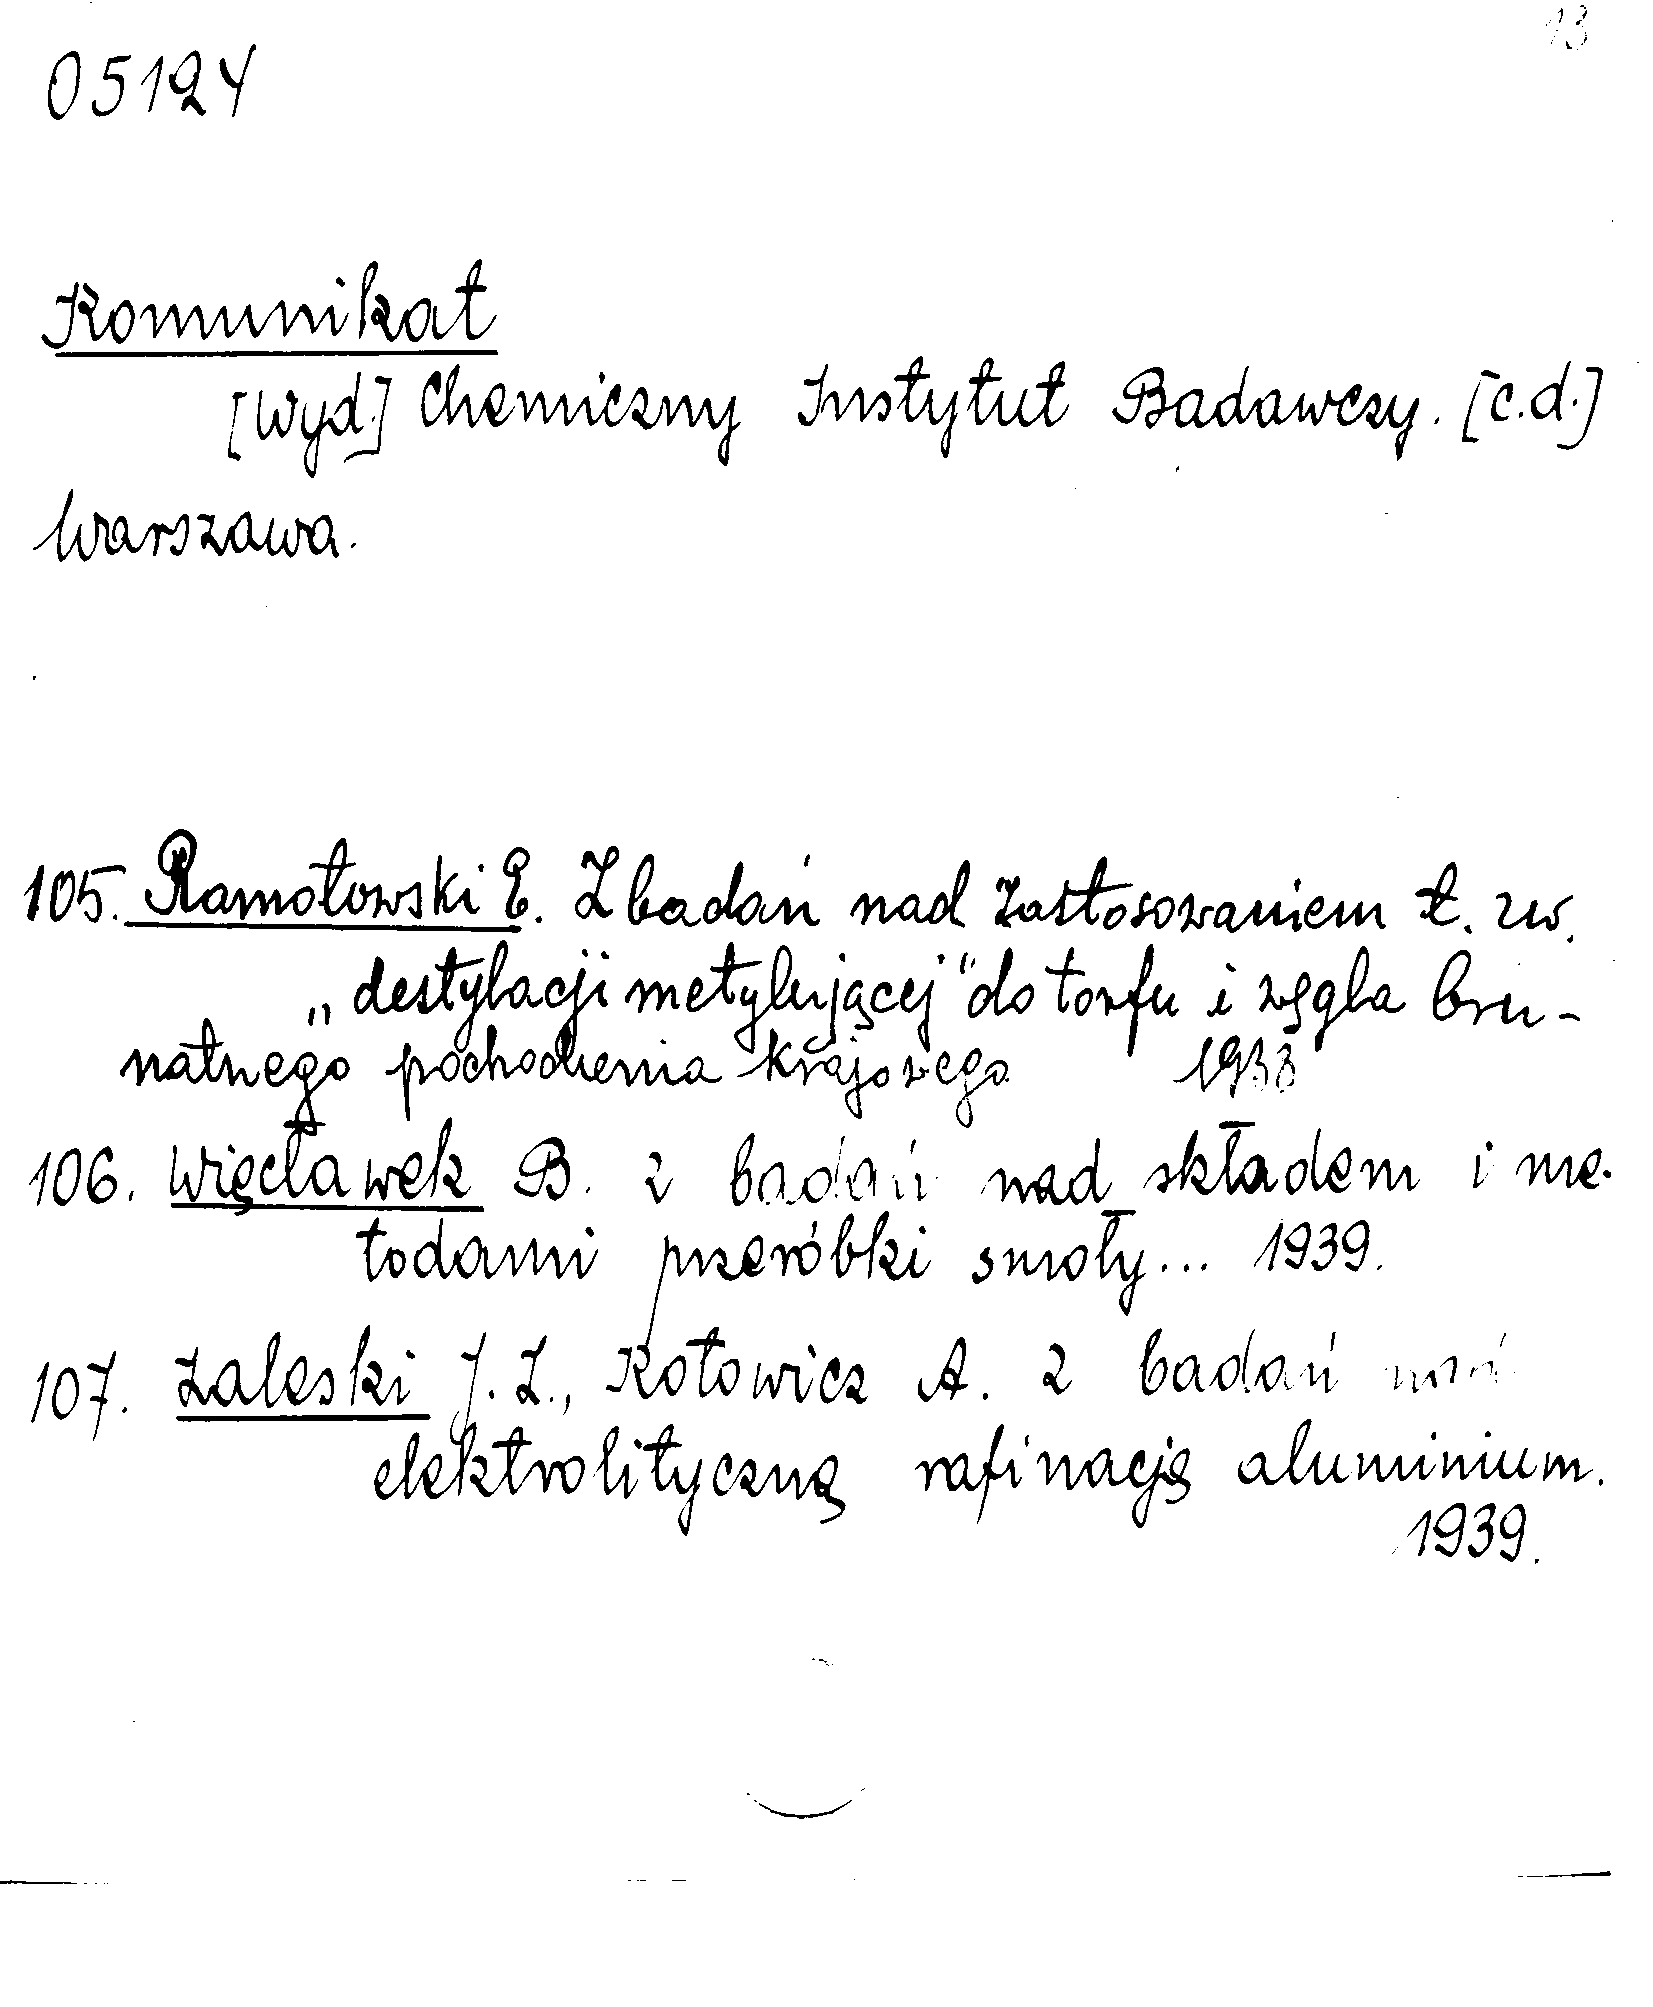 13
05124
Komunikat
[Wyd.] Chemiczny Instytut Badawczy. [c.d.]
Warszawa.
105. Ramotowski E. Z badań nad zastosowaniem t. zw.
„destylacji metylującej" do torfu i węgla bru-
natnego pochodzenia krajowego 1938
106. Więcławek B. Z badań nad składem i me-
todami przeróbki smoły... 1939.
107. Zaleski J. Z., Kotowicz A. Z badań nad
elektrolityczną rafinacją aluminium.
1939.